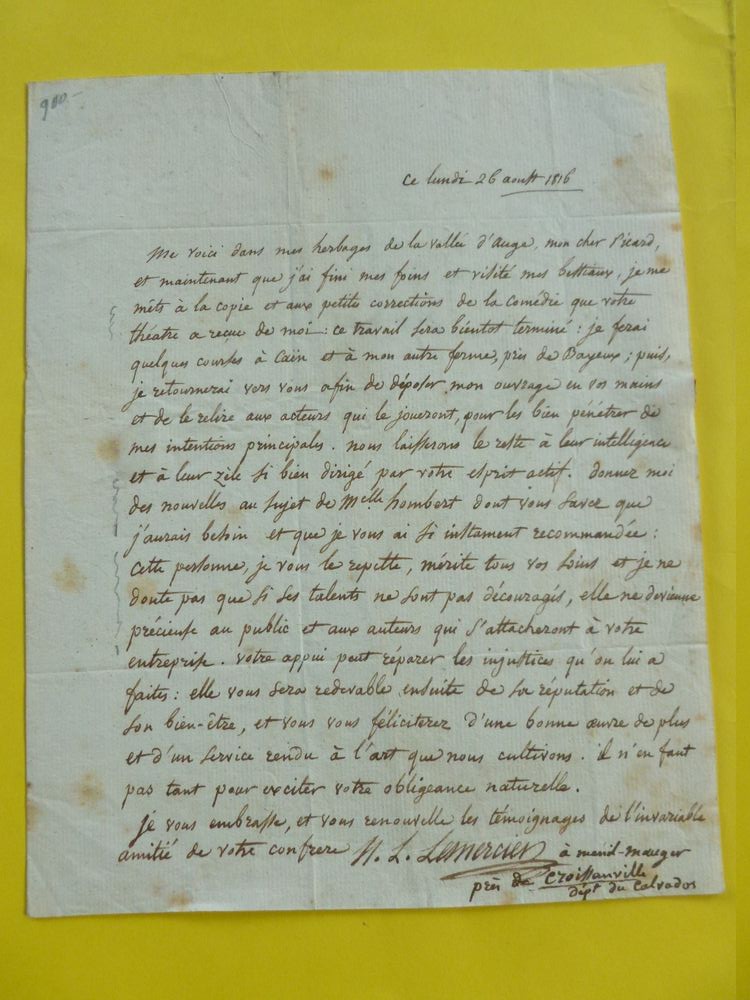 900.-
ce lundi 26 aoust 1816
Me voici dans mes herbages de la vallée d'Auge, mon cher Picard,
et maintenant que j'ai fini mes foins et visité mes bestiaux, je me
mets à la copie et aux petites corrections de la comédie que votre
théatre a reçue de moi : ce travail sera bientot terminé : je ferai
quelques courses à Caën et à mon autre ferme, près de Bayeux ; puis,
je retournerai vers vous afin de déposer mon ouvrage en vos mains
et de le relire aux acteurs qui le joueront, pour les bien pénétrer de
mes intentions principales. nous laisserons le reste à leur intelligence
et à leur zèle si bien dirigé par votre esprit actif. donnez moi
des nouvelles au sujet de Melle hombert dont vous savez que
j'aurais besoin et que je vous ai si instament recommandée :
cette personne, je vous le repette, mérite tous vos soins et je ne
doute pas que si ses talents ne sont pas découragés, elle ne devienne
précieuse au public et aux auteurs qui s'attacheront à votre
entreprise. votre appui peut réparer les injustices qu'on lui a
faites : elle vous sera redevable ensuite de sa réputation et de
son bien-être, et vous vous féliciterez d'une bonne œuvre de plus
et d'un service rendu à l'art que nous cultivons. il n'en faut
pas tant pour exciter votre obligeance naturelle.
je vous embrasse, et vous renouvelle les témoignages de l'invariable
amitié de votre confrere N. L. Lemercier à menil-mauger
près de Croissanville
dépt du Calvados